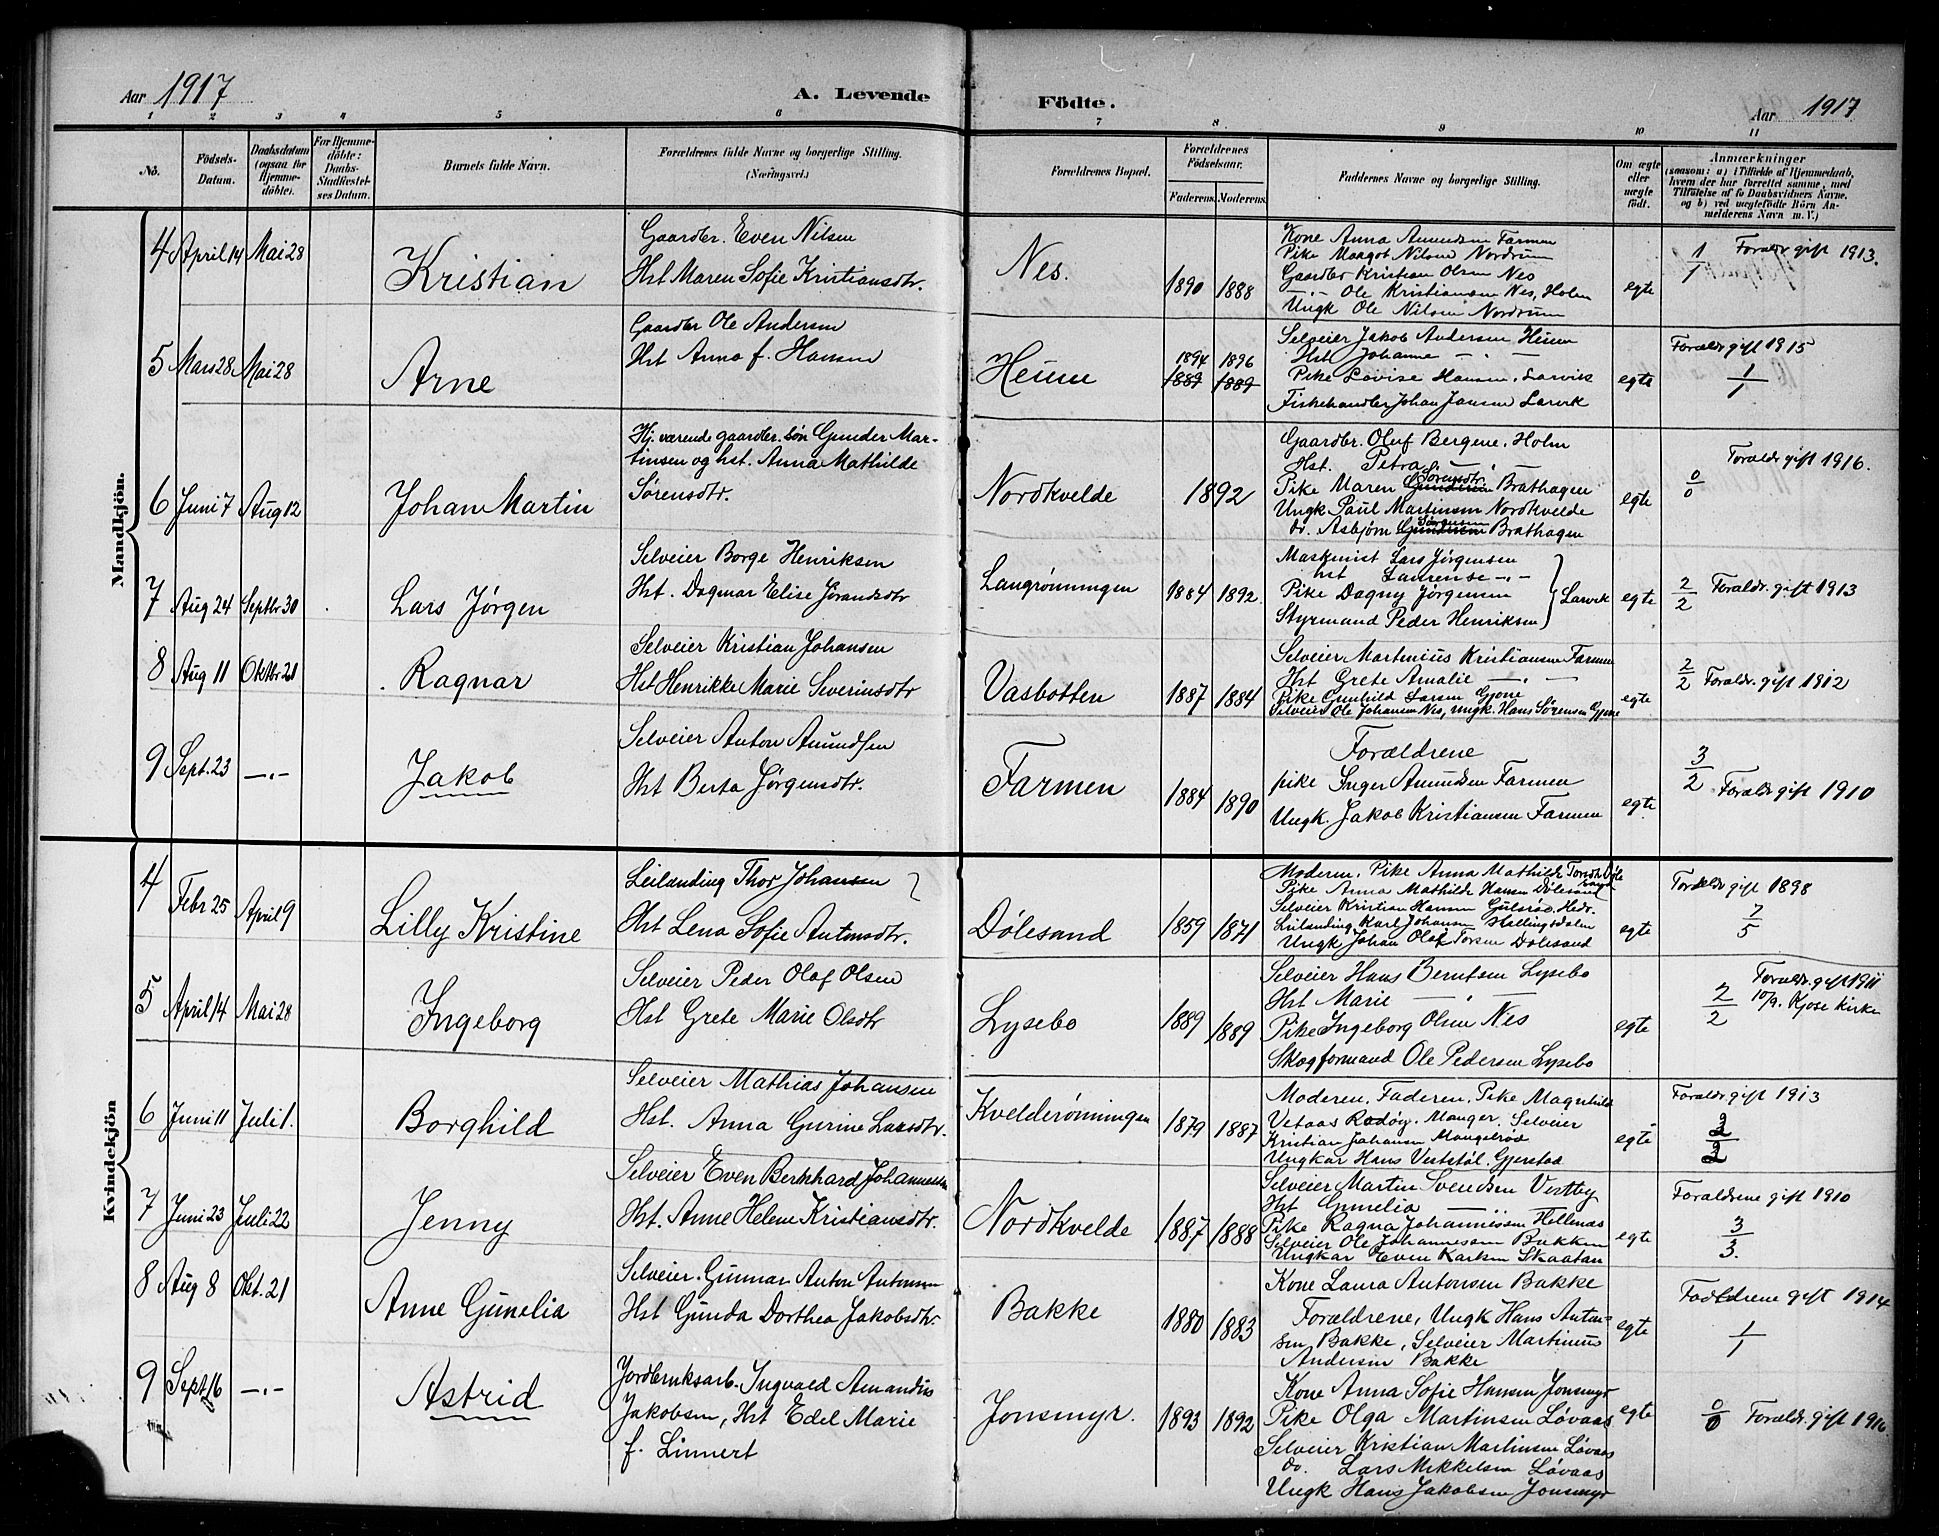 Aar 1917
A. Levende
Födte.
Aar 1917
1 2 3 4 5 6 7 8 9 10 11
No.
Födsels-
Datum.
Daabsdatum
(ogsaa for
Hjemme-
döbte).
For Hjemme-
döbte:
Daabs-
Stadfæstel-
ses Datum.
Barnets fulde Navn.
Forældrenes fulde Navne og borgerlige Stilling.
(Næringsvei.)
Forældrenes Bopæl.
Forældrenes
Födselsaar.
Faderens. Moderens.
Faddernes Navne og borgerlige Stilling.
Om ægte
eller
uægte
födt.
Anmærkninger
(saasom: a) i Tilfælde af Hjemmedaab,
hvem der har forrettet samme, med
Tilföielse af to Daabsvidners Navne,
og b) ved uægtefödte Börn An-
melderens Navn m. V.)
Mandkjön.
4 April 14 Mai 28
Kristian
Gaardbr. Even Nilsen
Hst Maren Sofie Kristiansdtr.
Nes.
1890 1888
Kone Anna Amundsen Farmen
Pike Maagot Nilsen Nordrum
Gaardbr Kristian Olsen Nes
—"— Ole Kristiansen Nes, Holm
Ungk Ole Nilsen Nordrum
egte
1/1 Forældr gift 1913.
5 Mars 28 Mai 28
Arne
Gaardbr Ole Andersen
Hst Anna f. Hansen
Heum
1894 1896
1889 1889
Selveier Jakob Andersen Heum
Hst Johanne — " —
Pike Lovise Hansen, Larvik
Fiskehandler Johan Jansen Larvik
egte
Forældr gift 1915
1/1
6 Juni 7 Aug 12
Johan Martin
Hj. værende gaardbr. søn Gunder Mar-
tinsen og hst. Anna Mathilde
Sørensdtr.
Nordkvelde
1892
Gaardbr. Oluf Bergene, Holm
Hst. Petra — " —
Sørensdtr.
Pike Maren Gundersen Brathagen
Ungk Paul Martinsen Nordkvelde
Sørensen
do. Asbjørn Gundersen Brathagen
egte
Forældr gift 1916.
0/0
7 Aug 24 Septbr 30
Lars Jørgen
Selveier Borge Henriksen
Hst. Dagmar Elise Jørandsdtr
Langrønningen
1884 1892.
Maskinist Lars Jørgensen
hst Laurense —"—
Pike Dagny Jørgensen
Styrmand Peder Henriksen
Larvik
egte
2/2 Forældr. gift 1913
8 Aug 11 Oktbr 21
Ragnar
Selveier Kristian Johansen
Hst Henrikke Marie Severinsdtr
Vasbotten
1887 1884
Selveier Martinius Kristiansen Farmen
Hst Grete Amalie — " —
Pike Gunhild Larsen Gjone
Selveier Ole Johansen Nes, Ungk. Hans Sørensen Gjone
egte
2/2 Forældr. gift 1912
9 Sept. 23 —"—
Jakob
Selveier Anton Amundsen
Hst Berta Jørgensdtr.
Farmen
1884 1890
Forældrene
pike Inger Amundsen Farmen
Ungk. Jakob Kristiansen Farmen
egte
3/2 Forældr gift 1910
Kvindekjön
4 Febr 25 April 9
Lilly Kristine
Leilænding Thor Johansen
Hst Lena Sofie Antonsdtr.
Dølesand
1859 1871
Moderen, Pike Anna Mathilde
Pike Anna Mathilde Hansen Dølesand
Selveier Kristian Hansen Gulsröe, Hedr.
Leilænding Karl Johansen Hallingsdalen
Ungk Johan Olaf Torsen Dølesand
egte
Forældr gift 1898
7/5
5 April 14 Mai 28
Ingeborg
Selveier Peder Olaf Olsen
Hst Grete Marie Olsdtr
Lysebo
1889 1889
Selveier Hans Berntsen Lysebo
Hst Marie — " —
Pike Ingeborg Olsen Nes
Skogformand Ole Pedersen Lysebo
egte
Forældr. gift 1911
2/2 10/9. Kjose kirke
6 Juni 11 Juli 1.
Borghild
Selveier Mathias Johansen
Hst. Anna Gurine Larsdtr.
Kvelderønningen
1879 1887
Moderen, Faderen, Pike Magnhild
Vetaas Radöy, Manger, Selveier
Kristian Johansen Mangelrød
Ungkar Hans Veststøl, Gjerstad
egte
Forældr gift 1913
2/2
7 Juni 23 Juli 22
Jenny
Selveier Even Bernhard Johannessen
Hst. Anne Helene Kristiansdtr.
Nordkvelde
1887 1888
Selveier Martin Svendsen Vestby
Hst Gunelia — " —
Pike Ragna Johannessen Hellenes
Selveier Ole Johannessen Bakken
Ungkar Even Karlsen Skaatan
egte
Forældrene gift 1910
3/3.
8 Aug 8 Okt. 21
Anne Gunelia
Selveier. Gunnar Anton Antonsen
Hst Gunda Dorthea Jakobsdtr.
Bakke
1880 1883
Kone Laura Antonsen Bakke
Forældrene, Ungk Hans Anton-
sen Bakke, Selveier Martinius
Andersen Bakke
egte
Forældrene gift 1914
1/1
9 Sept. 16 —"—
Astrid
Jordbruksarb. Ingvald Amandus
Jakobsen, Hst Edel Marie
f. Linnert
Jonsmyr.
1893 1892
Kone Anna Sofie Hansen Jonsmyr
Pike Olga Martinsen Løvaas
Selveier Kristian Martinsen Løvaas
do. Lars Mikkelsen Løvaas
Ungk Hans Jakobsen Jonsmyr
egte
0/0 Forældr. gift 1916.